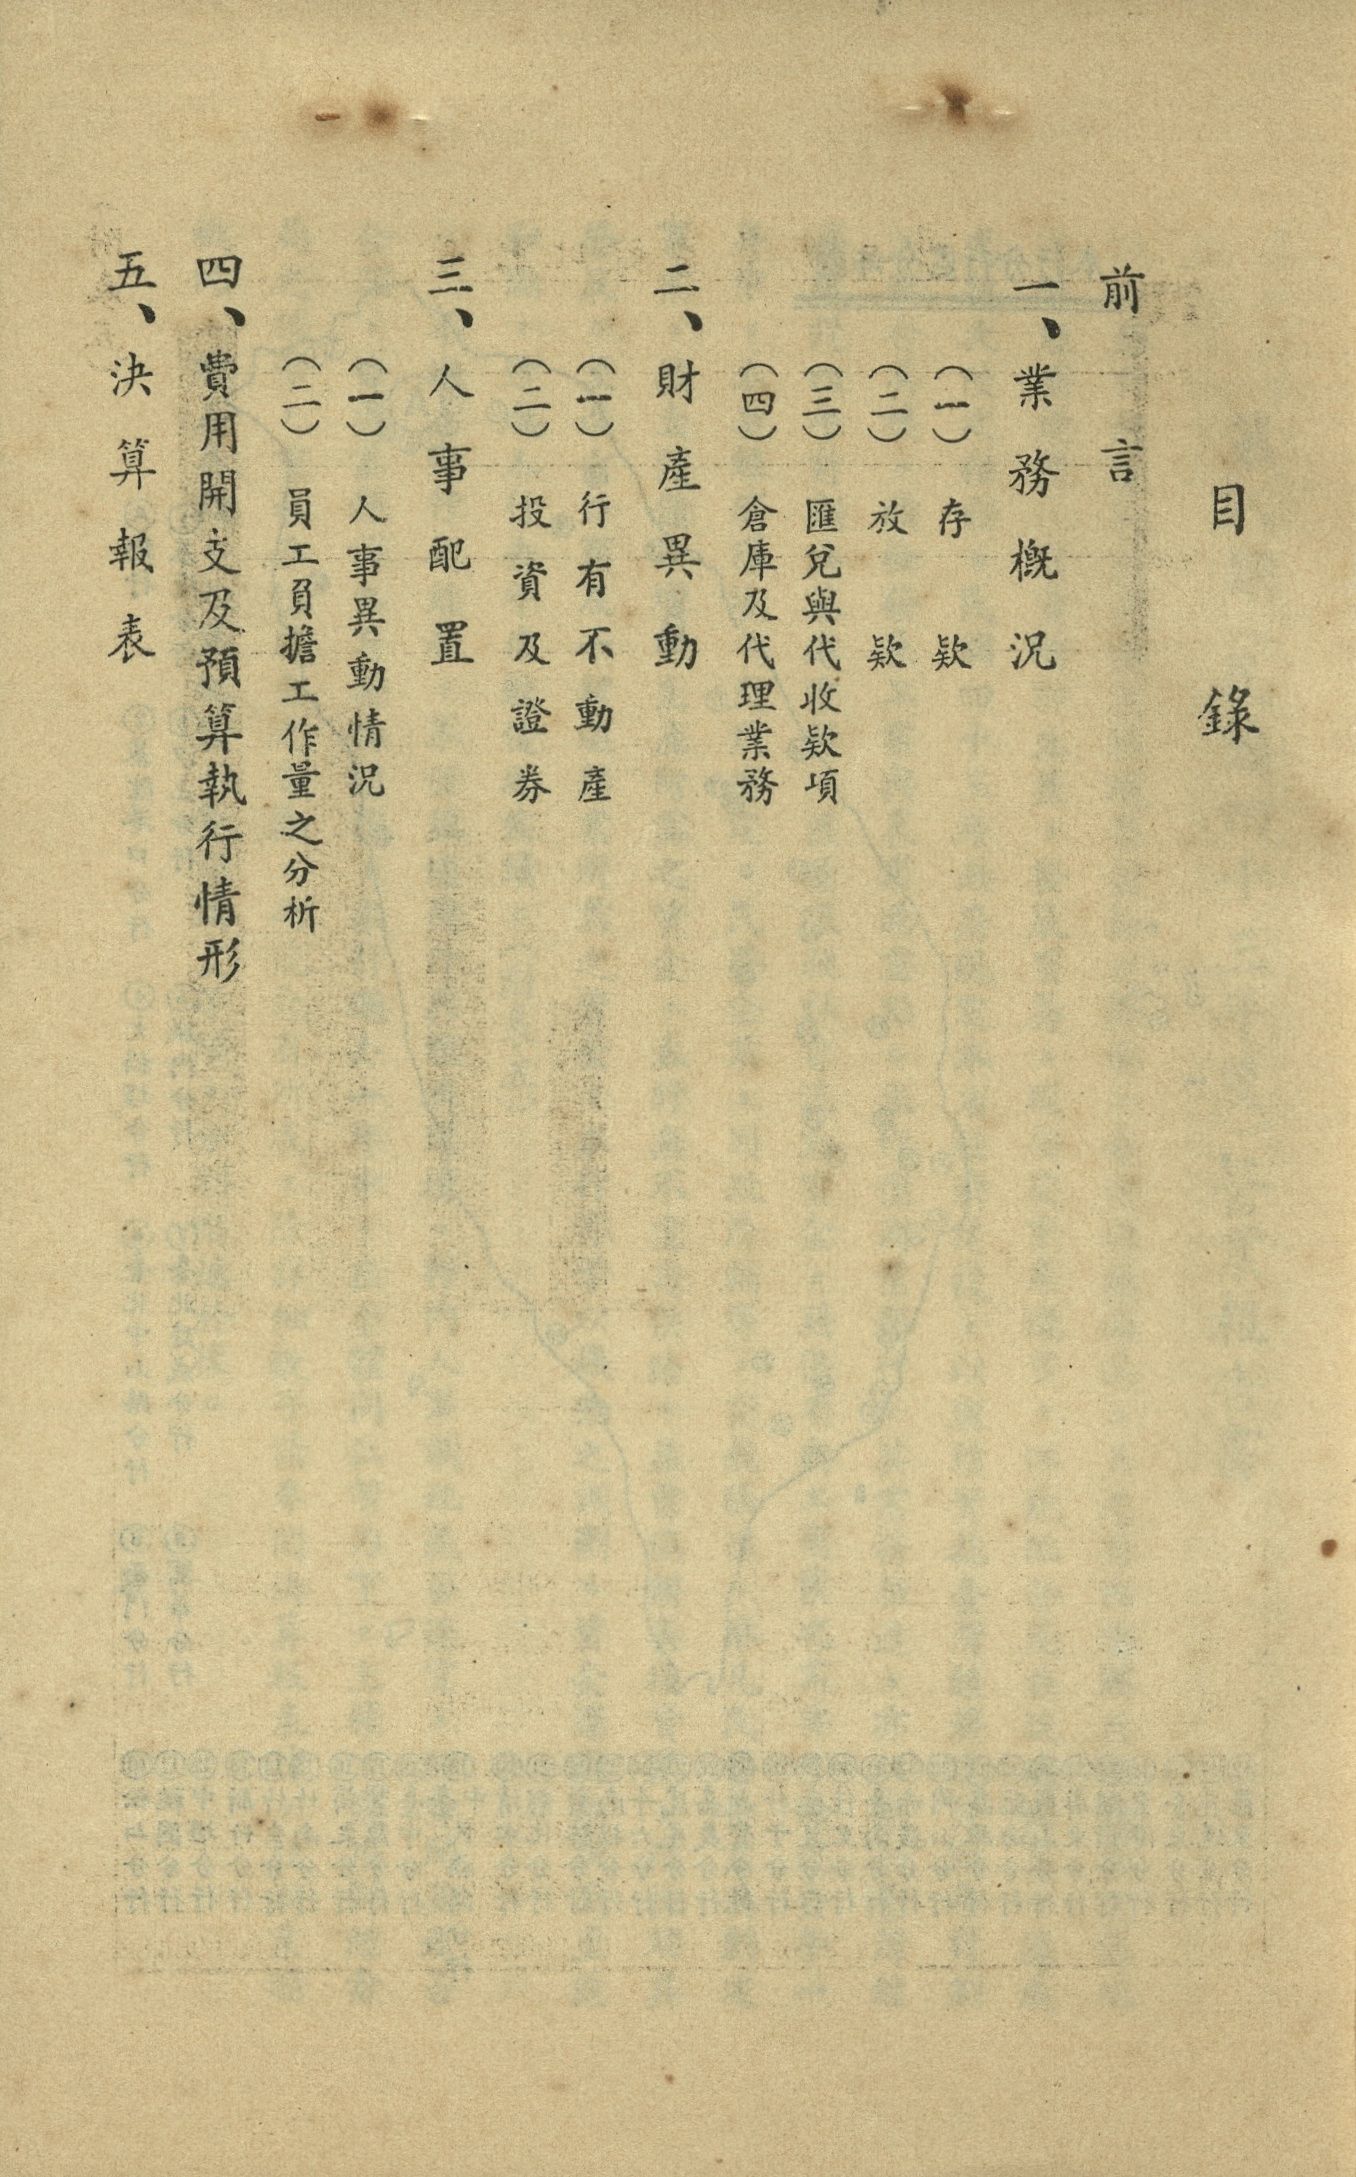 目錄
前言
一、業務概況
(一)存欵
(二)放欵
(三)匯兌與代收欵項
(四)倉庫及代理業務
二、財產異動
(一)行有不動產
(二)投資及證券
三、人事配置
(一)人事異動情況
(二)員工負擔工作量之分析
四、費用開支及預算執行情形
五、決算報表